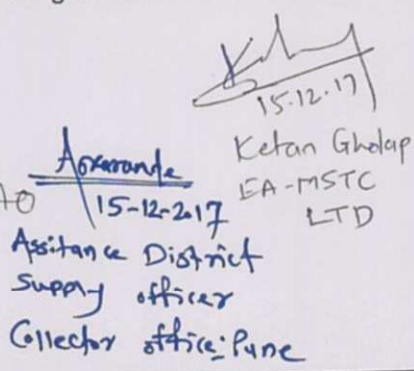 15.12.17
Ketan Gholap
EA-MSTC
LTD
to
15-12-2017
Assitance District
Supply officer
Collector office: Pune